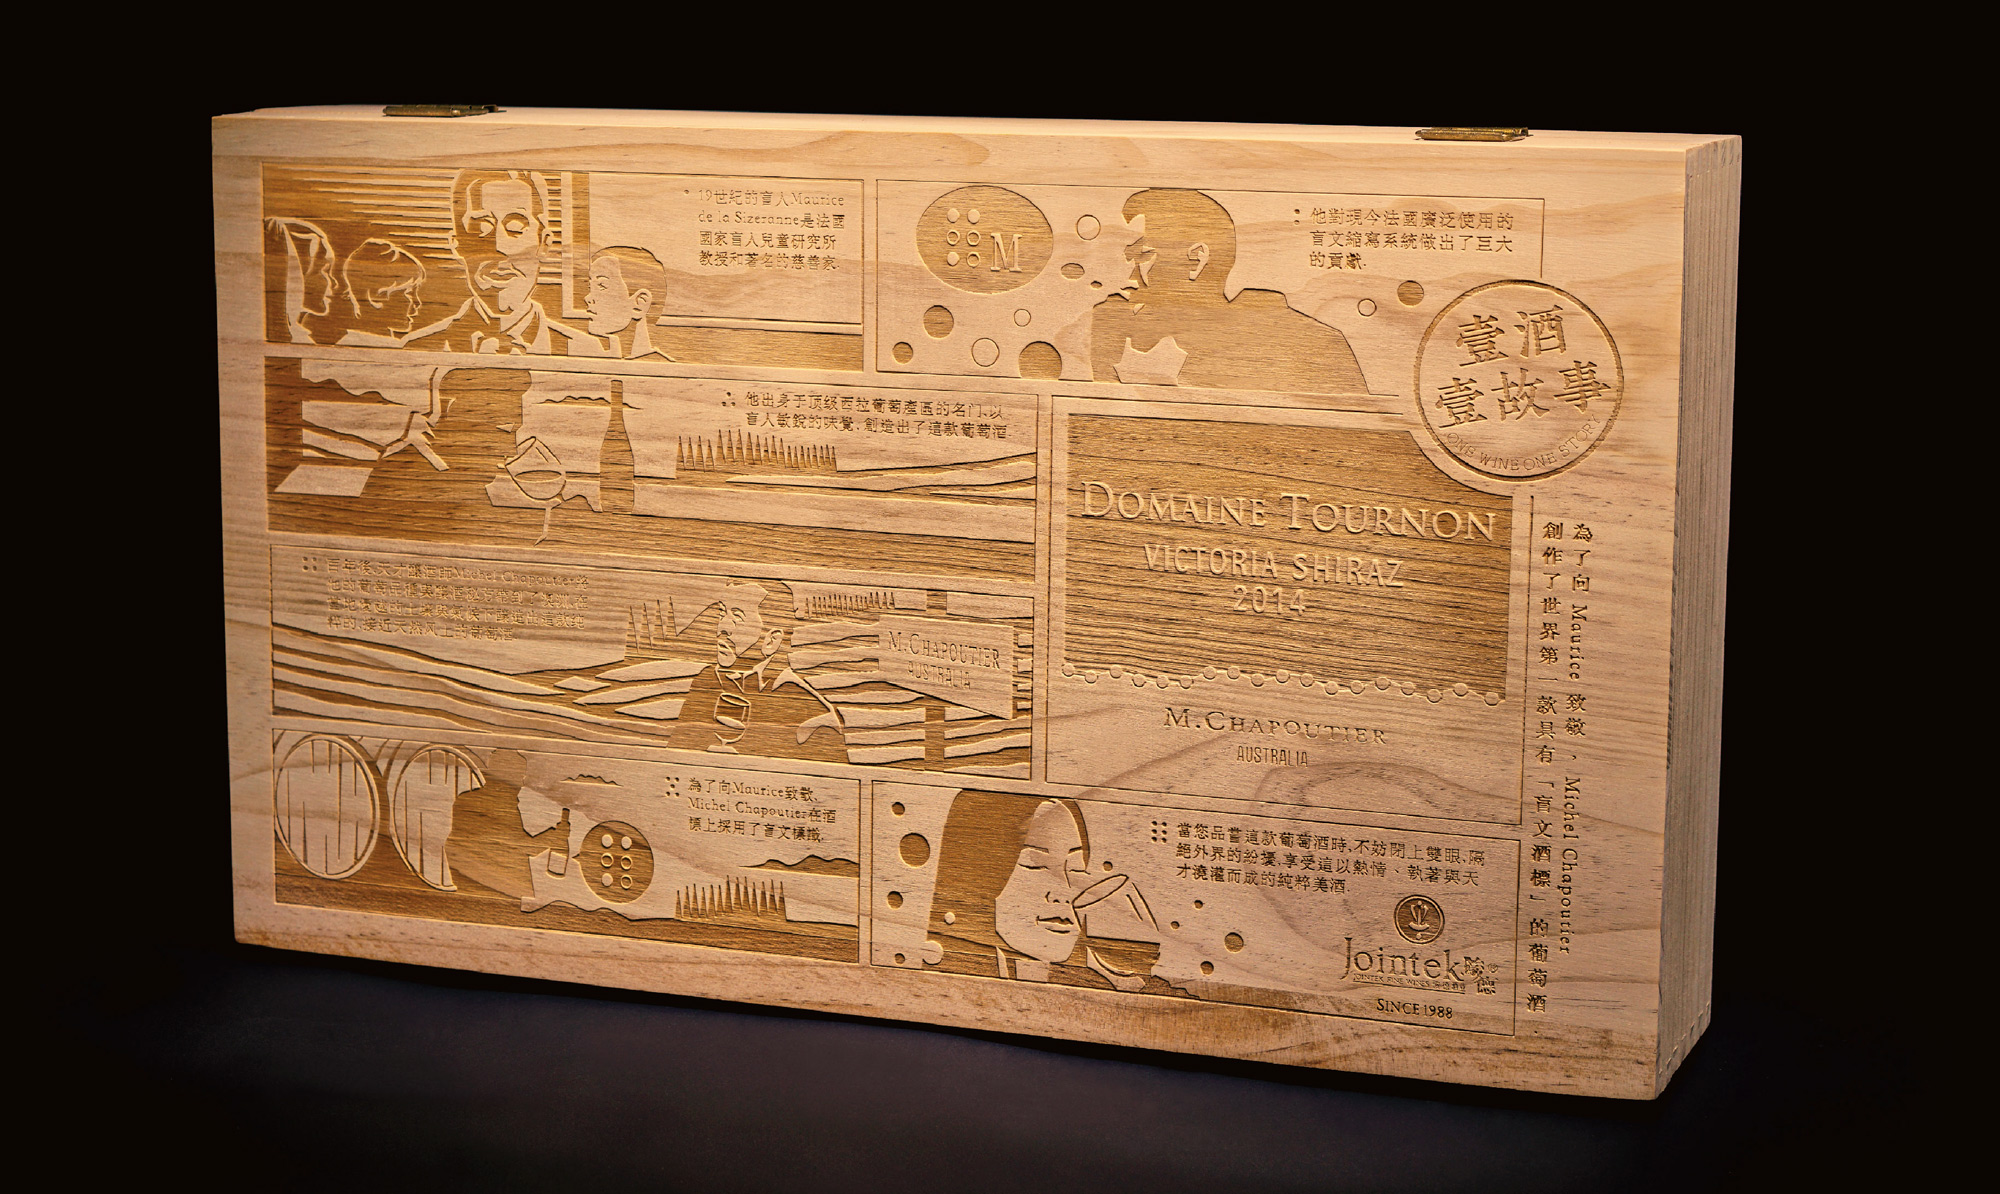 19世紀的盲人Maurice
de la Sizeranne是法國
國家盲人兒童研究所
教授和著名的慈善家.
M
他對現今法國廣泛使用的
盲文縮寫系統做出了巨大
的貢獻.
壹酒
壹故事
ONE WINE ONE STORY
他出身于顶级西拉葡萄產區的名门,以
盲人敏銳的味覺,創造出了這款葡萄酒.
DOMAINE TOURNON
VICTORIA SHIRAZ
2014
M.CHAPOUTIER
AUSTRALIA
百年後,天才釀酒師Michel Chapoutier將
他的葡萄品種與釀酒秘方帶到了澳洲,在
粹的,接近天然风土的葡萄酒.
M.CHAPOUTIER
AUSTRALIA
為了向Maurice致敬,
Michel Chapoutier在酒
標上採用了盲文標識.
當您品嘗這款葡萄酒時,不妨閉上雙眼,隔
絕外界的紛擾,享受這以熱情、執著與天
才澆灌而成的純粹美酒.
Jointek
JOINTEK FINE WINES
SINCE 1988
為了向 Maurice 致敬，Michel Chapoutier
創作了世界第一款具有「盲文酒標」的葡萄酒.